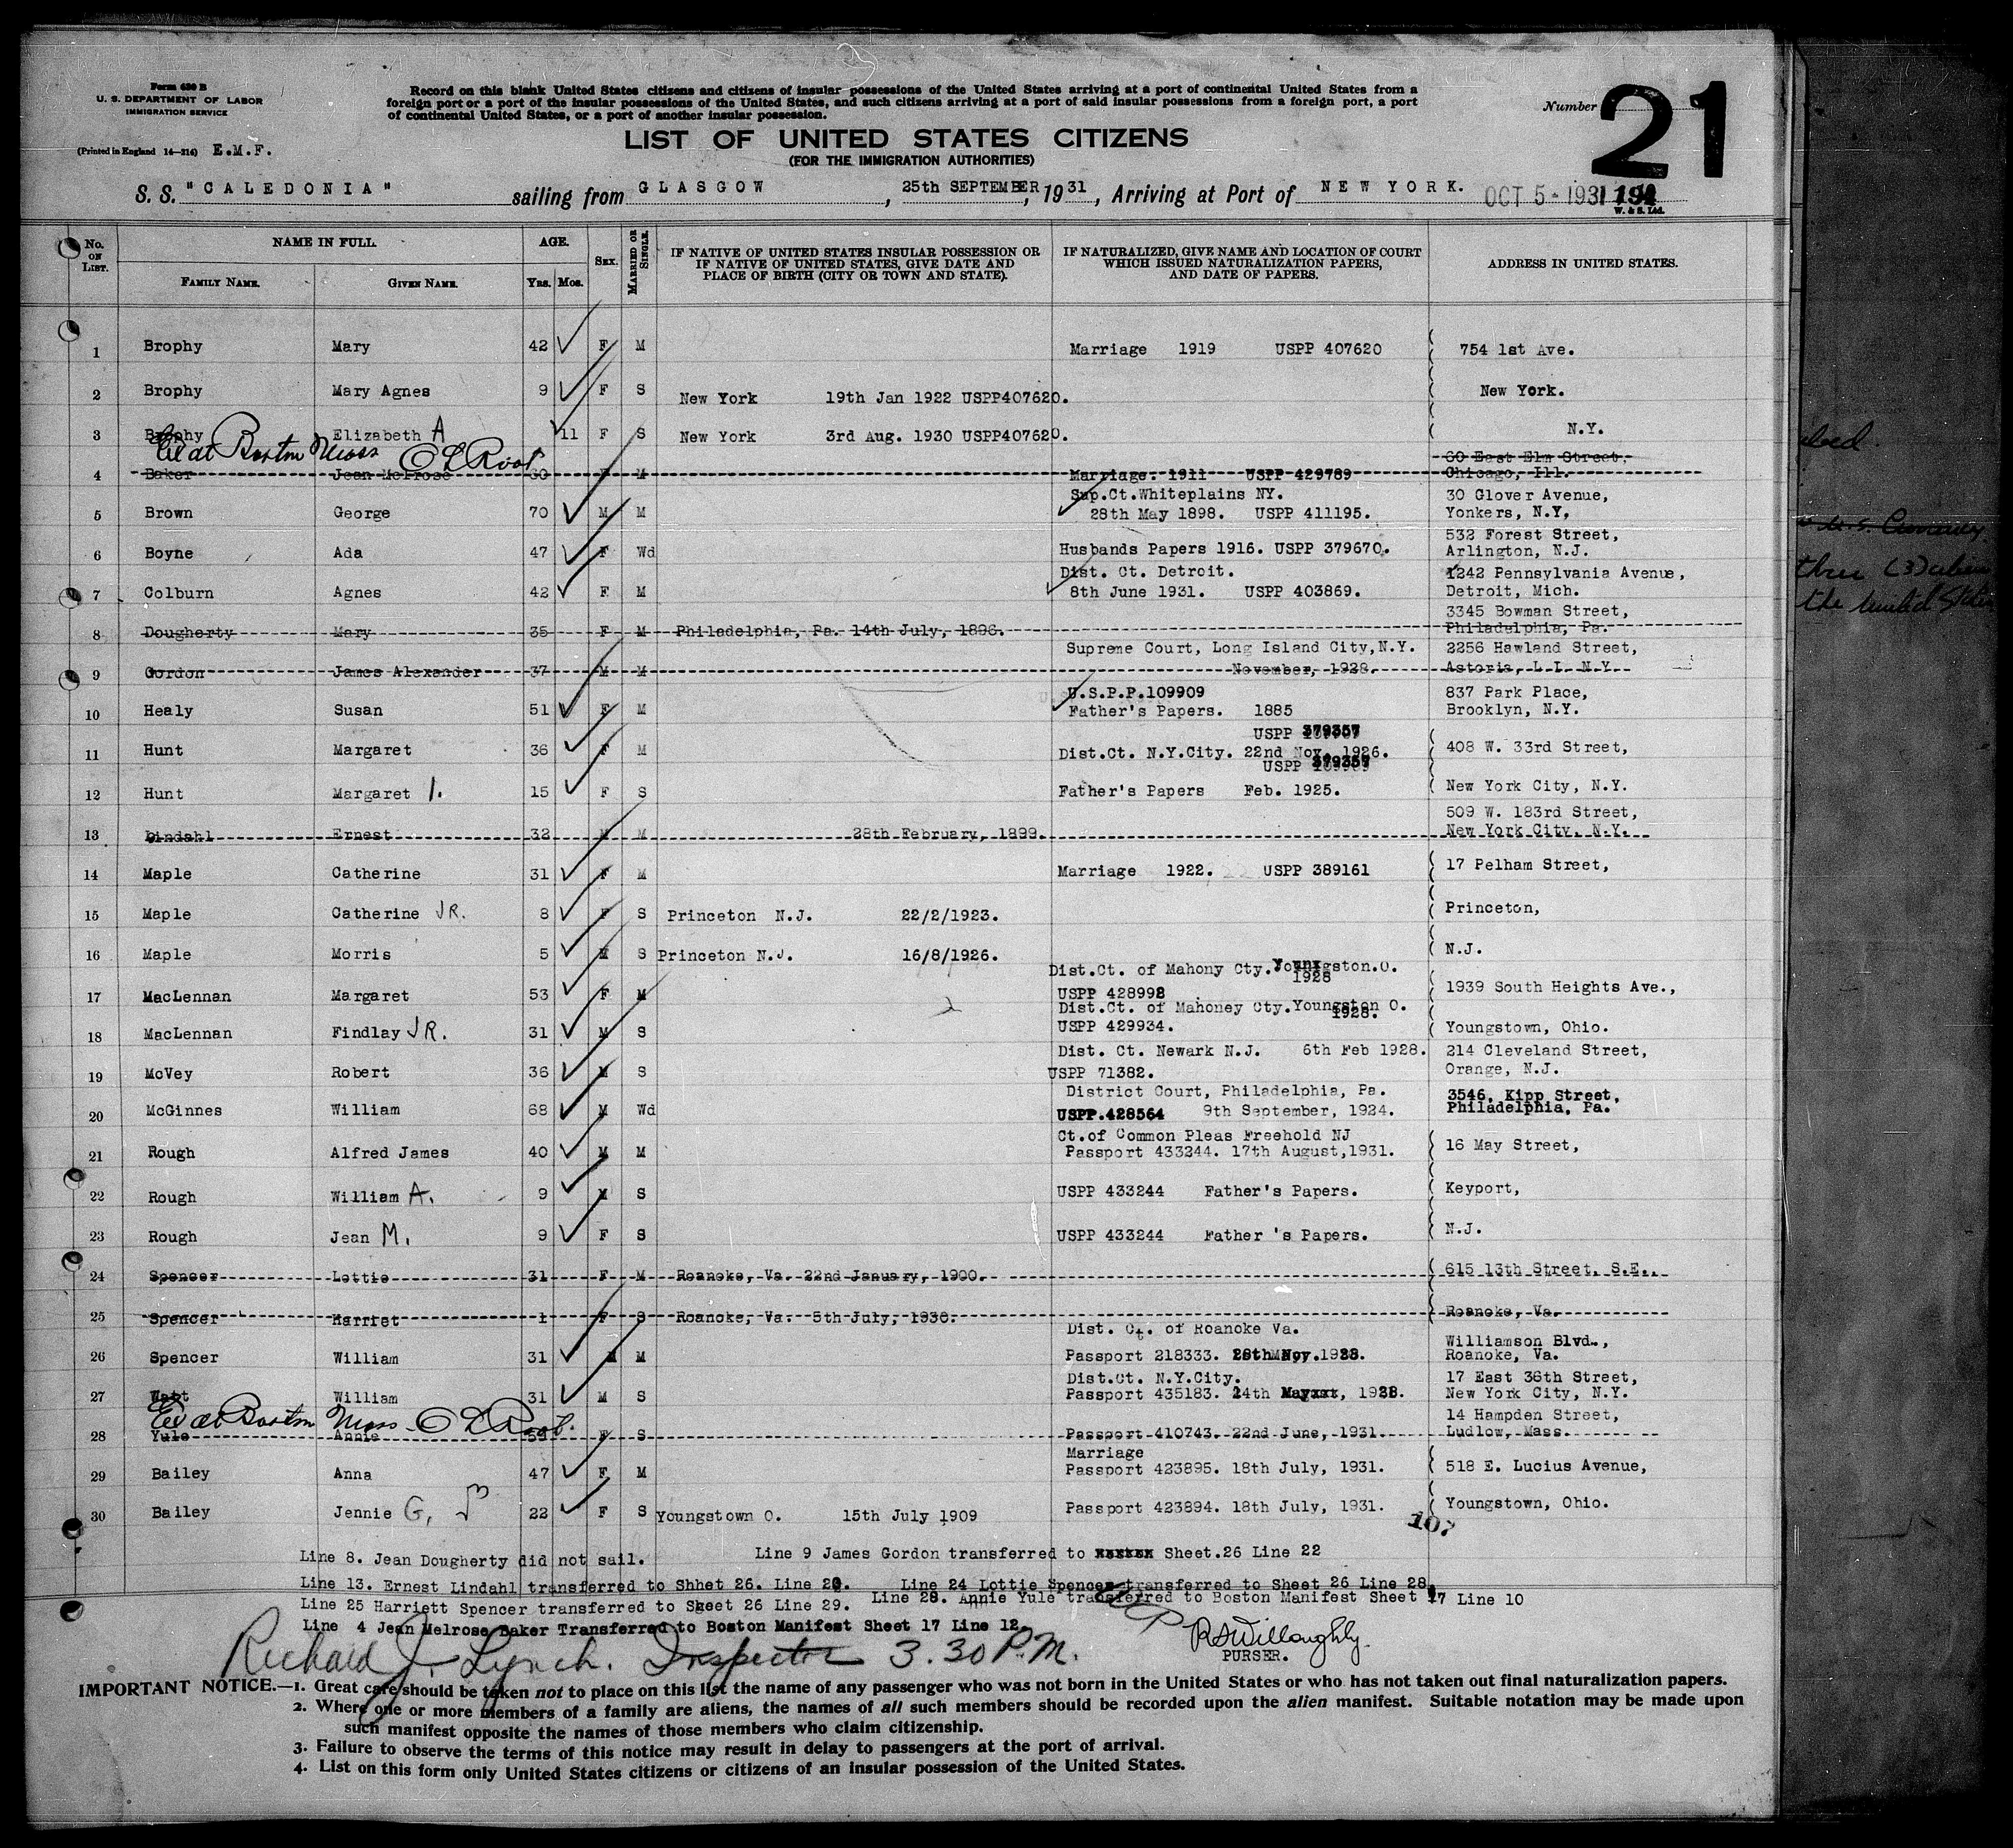 Form 630 B
U. S. DEPARTMENT OF LABOR
IMMIGRATION SERVICE
(Printed in England 14—214) E.M.F.
Record on this blank United States citizens and citizens of insular possessions of the United States arriving at a port of continental United States from a
foreign port or a port of the insular possessions of the United States, and such citizens arriving at a port of said insular possessions from a foreign port, a port
of continental United States, or a port of another insular possession.
Number 21
LIST OF UNITED STATES CITIZENS
(FOR THE IMMIGRATION AUTHORITIES)
S. S. "CALEDONIA" sailing from GLASGOW, 25th SEPTEMBER, 1931, Arriving at Port of NEW YORK. OCT 5 - 1931 194
W. & S. Ltd.
No. ON LIST. NAME IN FULL. AGE. SEX. MARRIED OR SINGLE. IF NATIVE OF UNITED STATES INSULAR POSSESSION OR IF NATIVE OF UNITED STATES, GIVE DATE AND PLACE OF BIRTH (CITY OR TOWN AND STATE). IF NATURALIZED, GIVE NAME AND LOCATION OF COURT WHICH ISSUED NATURALIZATION PAPERS, AND DATE OF PAPERS. ADDRESS IN UNITED STATES.
FAMILY NAME. GIVEN NAME. YRS. MOS.
1 Brophy Mary 42 F M Marriage 1919 USPP 407620 754 1st Ave.
2 Brophy Mary Agnes 9 F S New York 19th Jan 1922 USPP407620. New York.
3 Brophy Elizabeth A 11 F S New York 3rd Aug. 1930 USPP407620. N.Y.
at Boston Mass
60 East Elm Street,
4 Baker Jean Melrose 60 F M Marriage. 1911 USPP 429789 Chicago, Ill.
Sup.Ct.Whiteplains NY. 30 Glover Avenue,
5 Brown George 70 M M 28th May 1898. USPP 411195. Yonkers, N.Y,
532 Forest Street,
6 Boyne Ada 47 F Wd Husbands Papers 1916. USPP 379670. Arlington, N.J.
Dist. Ct. Detroit. 1242 Pennsylvania Avenue,
7 Colburn Agnes 42 F M 8th June 1931. USPP 403869. Detroit, Mich.
3345 Bowman Street,
8 Dougherty Mary 35 F M Philadelphia, Pa. 14th July, 1896. Philadelphia, Pa.
Supreme Court, Long Island City, N.Y. 2256 Hawland Street,
9 Gordon James Alexander 37 M M November, 1928. Astoria, L.I. N.Y.
U.S.P.P.109909 837 Park Place,
10 Healy Susan 51 F M Father's Papers. 1885 Brooklyn, N.Y.
USPP 379357
11 Hunt Margaret 36 F M Dist.Ct. N.Y.City. 22nd Nov. 1926. 408 W. 33rd Street,
USPP 379357
12 Hunt Margaret I. 15 F S Father's Papers Feb. 1925. New York City, N.Y.
509 W. 183rd Street,
13 Lindahl Ernest 32 M M 28th February, 1899. New York City, N.Y.
14 Maple Catherine 31 F M Marriage 1922. USPP 389161 17 Pelham Street,
15 Maple Catherine JR. 8 F S Princeton N.J. 22/2/1923. Princeton,
16 Maple Morris 5 M S Princeton N.J. 16/8/1926. N.J.
Dist.Ct. of Mahony Cty. Youngston.O.
1928
17 MacLennan Margaret 53 F M USPP 428998 1939 South Heights Ave.,
Dist.Ct. of Mahoney Cty.Youngston O.
1928.
18 MacLennan Findlay JR. 31 M S USPP 429934. Youngstown, Ohio.
Dist. Ct. Newark N.J. 6th Feb 1928. 214 Cleveland Street,
19 McVey Robert 36 M S USPP 71382. Orange, N.J.
District Court, Philadelphia, Pa. 3546, Kipp Street,
20 McGinnes William 68 M Wd USPP.428564 9th September, 1924. Philadelphia, Pa.
Ct.of Common Pleas Freehold NJ
21 Rough Alfred James 40 M M Passport 433244. 17th August,1931. 16 May Street,
22 Rough William A. 9 M S USPP 433244 Father's Papers. Keyport,
23 Rough Jean M. 9 F S USPP 433244 Father 's Papers. N.J.
24 Spencer Lottie 31 F M Roanoke, Va. 22nd January, 1900. 615 13th Street, S.E.,
25 Spencer Harriet 1 F S Roanoke, Va. 5th July, 1930. Roanoke, Va.
Dist. Ct. of Roanoke Va. Williamson Blvd.,
26 Spencer William 31 M M Passport 218333. Roanoke, Va.
Dist.Ct. N.Y.City. 17 East 36th Street,
27 Watt William 31 M S Passport 435183. 24th 1928. New York City, N.Y.
at Boston Mass
14 Hampden Street,
28 Yule Annie F S Passport 410743. 22nd June, 1931. Ludlow, Mass.
Marriage
29 Bailey Anna 47 F M Passport 423895. 18th July, 1931. 518 E. Lucius Avenue,
30 Bailey Jennie G. 22 F S Youngstown O. 15th July 1909 Passport 423894. 18th July, 1931. Youngstown, Ohio.
107
Line 8. Jean Dougherty did not sail. Line 9 James Gordon transferred to Sheet.26 Line 22
Line 13. Ernest Lindahl transferred to Shhet 26. Line Line 24 Lottie Spencer transferred to Sheet 26 Line 28
Line 25 Harriett Spencer transferred to Sheet 26 Line 29. Line 28. Annie Yule transferred to Boston Manifest Sheet 17 Line 10
Line 4 Jean Melrose Baker Transferred to Boston Manifest Sheet 17 Line 12
Richard J. Lynch. Inspector 3.30 P.M.
Willoughby.
PURSER.
IMPORTANT NOTICE.—1. Great care should be taken not to place on this list the name of any passenger who was not born in the United States or who has not taken out final naturalization papers.
2. Where one or more members of a family are aliens, the names of all such members should be recorded upon the alien manifest. Suitable notation may be made upon
such manifest opposite the names of those members who claim citizenship.
3. Failure to observe the terms of this notice may result in delay to passengers at the port of arrival.
4. List on this form only United States citizens or citizens of an insular possession of the United States.
three (3)
the United States